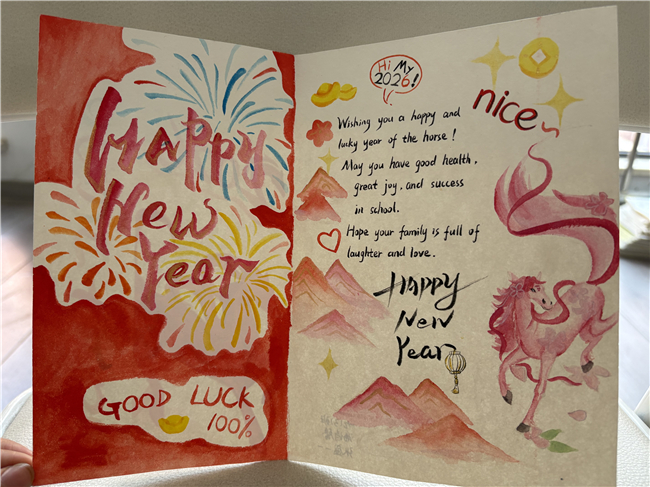 Happy
New
Year
GOOD LUCK
100%
Hi My
2026!
nice~
Wishing you a happy and
lucky year of the horse!
May you have good health,
great joy, and success
in school.
Hope your family is full of
laughter and love.
Happy
New
Year